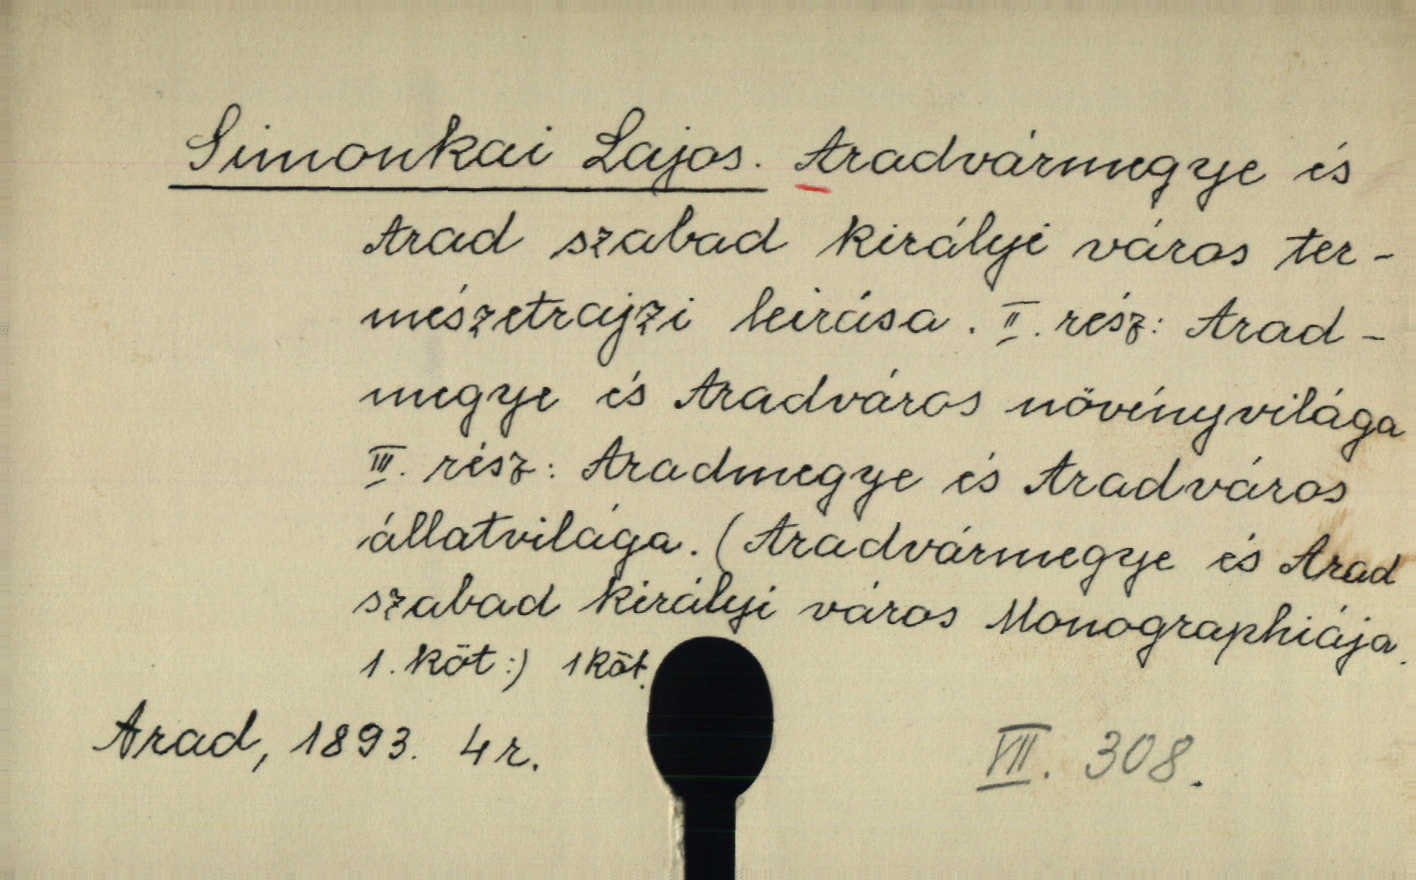 Simonkai Lajos. Aradvármegye és
Arad szabad királyi város ter-
mészetrajzi leirása. II. rész: Arad-
megye és Aradváros növényvilága
III. rész: Aradmegye és Aradváros
állatvilága. (Aradvármegye és Arad
szabad királyi város Monographiája.
1. köt:) 1 köt.
Arad, 1893. 4 r.
VII. 308.